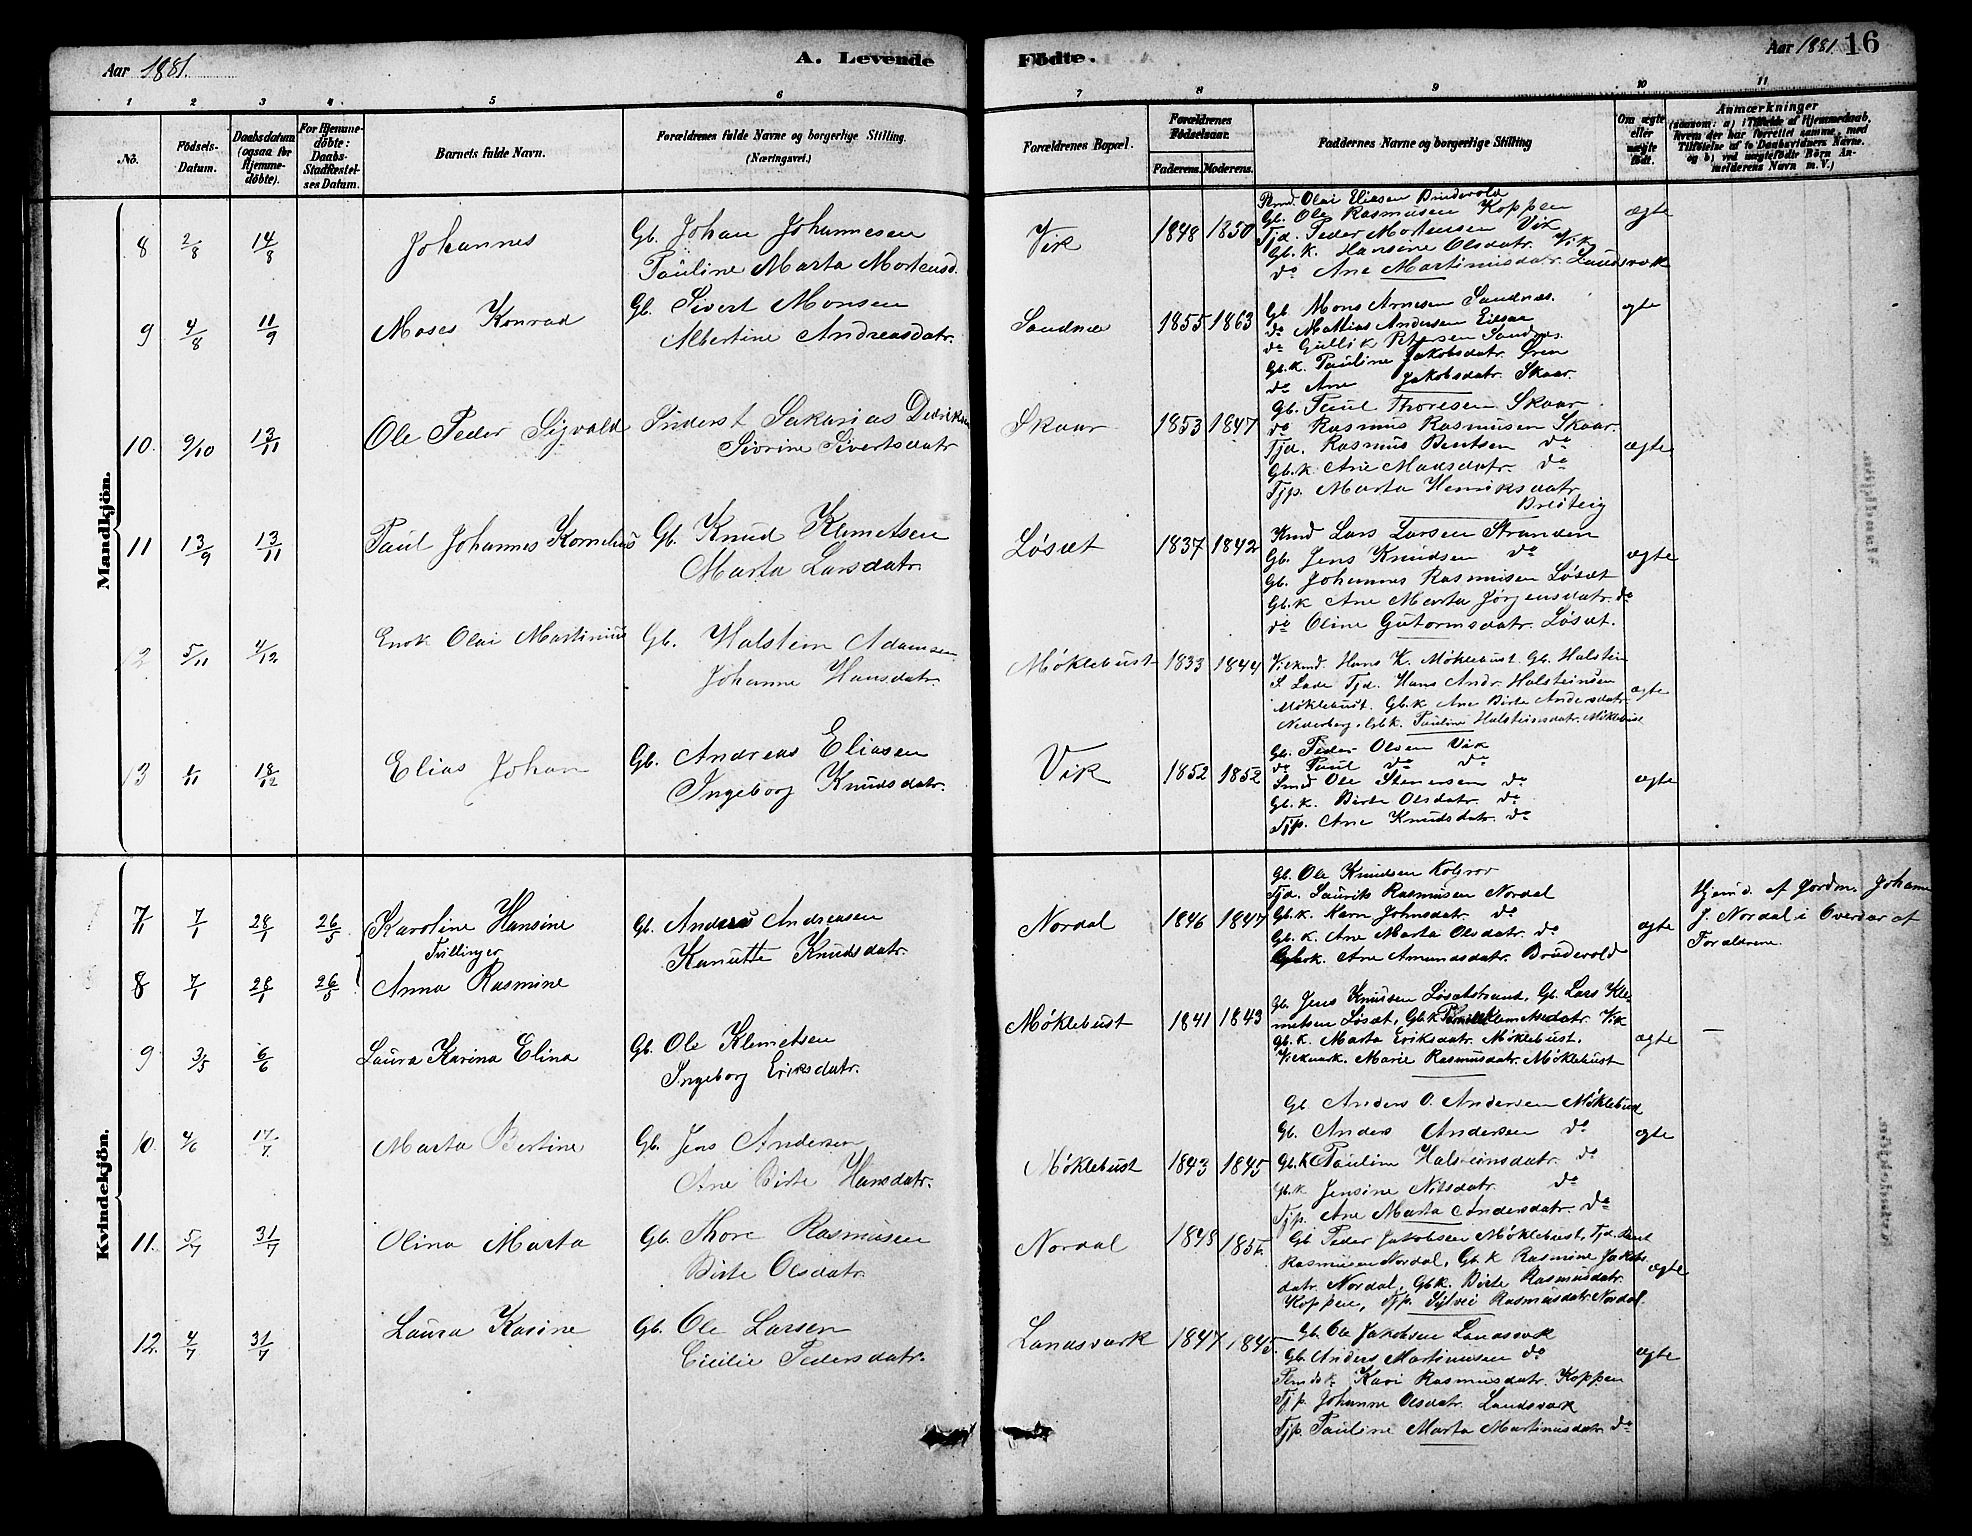 Aar 1881.
A. Levende
Födte.
Aar 1881. 16
1 2 3 4 5 6 7 8 9 10 11
No.
Födsels-Datum.
Daabsdatum (ogsaa for Hjemme-döbte).
For Hjemme-döbte: Daabs-Stadfæstel-ses Datum.
Barnets fulde Navn.
Forældrenes fulde Navne og borgerlige Stilling. (Næringsvei.)
Forældrenes Bopæl.
Forældrenes Födselsaar.
Faderens. Moderens.
Faddernes Navne og borgerlige Stilling
Om ægte eller uægte födt.
Anmærkninger
(saasom: a) i Tilfælde af Hjemmedaab, hvem der har forrettet samme, med Tilföielse af to Daabsvidners Navne. og b) ved uægtefödte Börn An-melderens Navn m. V.)
Mandkjön.
8 2/8 14/8 Johannes
Gb. Johan Johannesen
Pauline Marta Mortensd.
Vik 1848 1850
Olai Eliesen Brudevold
Gb. Ole Rasmusen Koppen
Tjd. Peder Mortensen Vik
Gb. K. Hansine Olsdatr. Vik
do Ane Martinusdatr. Landsværk
ægte
9 4/8 11/9 Moses Konrad
Gb. Sivert Monsen
Albertine Andreasdatr.
Sandnæs 1855 1863
Gb. Mons Arnesen Sandnæs.
do Mattias Andersen
do Gullik Petersen Sandnæs.
Gb.k. Pauline Jakobsdatr.
do Ane Jakobsdatr. Skaar.
ægte
10. 9/10 13/11 Ole Peder Sigvald
Inderst Sakarias
Sivrine Sivertsdatr
Skaar 1853 1847
Gb. Paul Thoresen Skaar.
do Rasmus Rasmusen Skaar.
Tjd. Rasmus Bentsen do
Gb.k. Ane Madsdatr. do
Tjp. Marta Henriksdatr.
ægte
11 13/9 13/11 Paul Johannes Kornelius
Gb. Knud Klemetsen
Marta Larsdatr.
Løsæt 1837 1842
Lars Larsen Stranden
Gb. Jens Knudsen do
Gb. Johannes Rasmusen Løsæt
Gb.k Ane Marta Jørgensdatr. do
do Oline Gutormsdatr. Løsæt.
ægte
12 5/11 4/12 Enok Olai Martinius
Gb. Halstein Adamsen
Johanne Hansdatr.
Møklebust 1833 1844
Hans K. Møklebust. Gb. Halstein
S. Lade Tjd. Hans Andr. Halsteinsen
Møklebust. Gb.k Ane Birte Andersdatr.
Nederberg, Gbk. Pauline Halsteinsdatr. Møklebust
ægte
13 1/11 18/12 Elias Johan
Gb. Andreas Eliasen
Ingeborg Knudsdatr.
Vik 1852 1852
Gb. Peder Olsen Vik
do Paul do do
Smed Ole Stenersen do
Gb.k. Birte Olsdatr. do
Tjp. Ane Knudsdatr. do
ægte
Kvindekjön.
7 7/1 28/1 26/5 Karoline Hansine
Tvillinger
Gb. Anders Andreasen
Kanutte Knudsdatr.
Nordal 1846 1847
Gb. Ole Knudsen Kolgrov
Tjd. Laurits Rasmusen Nordal
Gb.k. Karn Johnsdatr. do
Gb.k. Ane Marta Olsdatr. do
Gb.k. Ane Amundsdatr. Brudevold
ægte
Hjemd. af Jordm. Johanne
J. Nordal i Overvær af
Forældrene.
8 7/1 28/1 26/5 Anna Rasmine
9 3/5 6/6 Laura Karina Elina
Gb. Ole Klemetsen
Ingeborg Eriksdatr.
Møklebust 1841 1843
Gb. Jens Knudsen Løsætstrand, Gb. Lars Kle-
metsen Løsæt, Gb.k Klemetsdatr. Vik
Gb.k. Marta Eriksdatr. Møklebust.
Marie Rasmusdatr. Møklebust
ægte
—
10. 4/6 17/7 Marta Bertine
Gb. Jens Andersen
Ane Birte Hansdatr.
Møklebust 1843 1845
Gb. Anders O. Andersen Møklebust
Gb. Anders Andersen do
Gb.k Pauline Halsteinsdatr. do
Gb.k Jensine Nilsdatr. do
Tjp. Ane Marta Andersdatr. do
ægte
11. 5/7 31/7 Olina Marta
Gb. Thore Rasmusen
Birte Olsdatr.
Nordal 1848
Gb Peder Jakobsen Møklebust, Tjd. Knut
Rasmusen Nordal, Gb.k Rasmine Jakobs
datr. Nordal, Gbk. Birte Rasmusdatr.
Koppen, Tjp. Sylvei Rasmusdatr. Nordal.
ægte
12. 4/7 31/7 Laura Kasine
Gb. Ole Larsen
Cicilie Pedersdatr.
Landsværk 1847 1845
Gb. Ole Jakobsen Landsvæk
Gb. Anders Martinusen do
Kari Rasmusdatr. Koppen
Tjp. Johanne Olsdatr. Landsværk
Tjp. Pauline Marta Martinusdatr. do
ægte